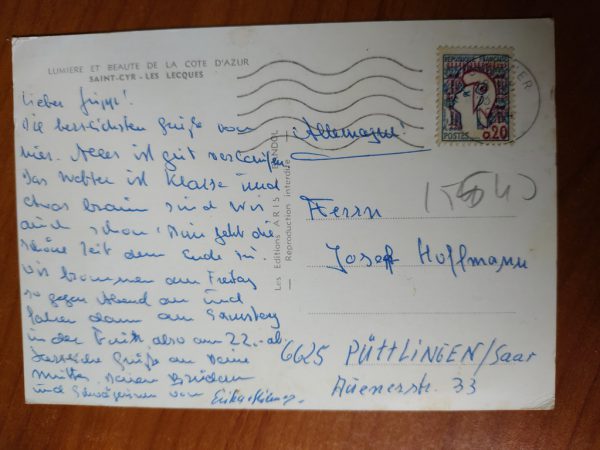 LUMIERE ET BEAUTE DE LA COTE D'AZUR
SAINT-CYR - LES LECQUES
Lieber
Die herzlichsten Grüße von
hier. Alles ist gut verlaufen
Das Wetter ist Klasse und
etwas braun sind wir
auch schon! Nun geht die
schöne Zeit dem Ende zu.
Wir kommen am Freitag
so gegen Abend an und
fahren dann am Samstag
in der Früh also am 22. ab
Herzliche Grüße an Deine
Mutter, Deinen Brüdern
und Schwägerinnen von
Les Editions ARIS BANDOL
Reproduction interdite
POSTES
0,20
Allemagne!
Herrn
Josef Hoffmann
6625 PÜTTLINGEN/Saar
33